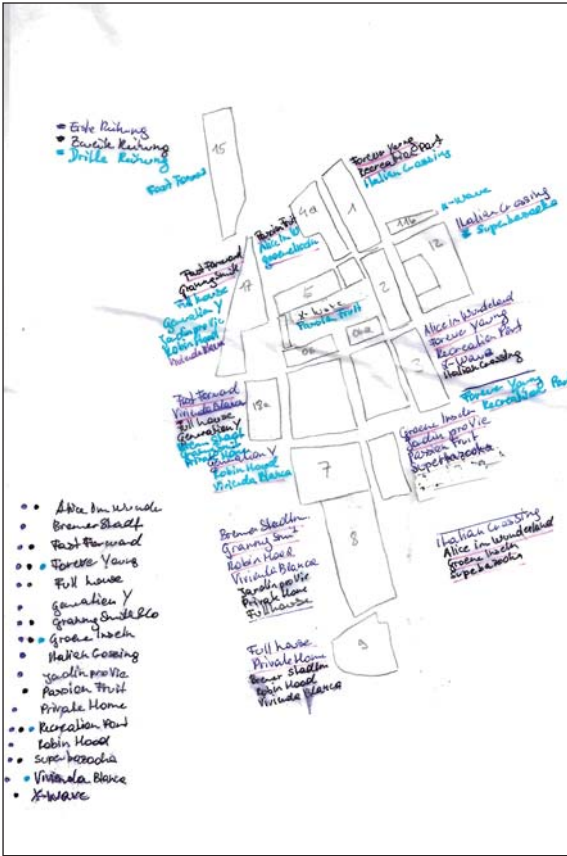 Erste Reihung
Zweite Reihung
Dritte Reihung
15
Fast Forward
Forever Young
Recreation Port
Italian Crossing
4a
1
X-Wave
11b
Italian Crossing
Superbazooka
12
Passion Fruit
Alice in W
groene Inseln
Fast Forward
Granny Smith
Full house
Generation Y
Jardin pro Vie
Robin Hood
Vivienda Blanca
17
5
2
X-Wave
Passion Fruit
6a
3
Alice in Wunderland
Forever Young
Recreation Port
X-Wave
Italian Crossing
Forever Young
Recreation Port
Fast Forward
Vivienda Blanca
Full house
Generation Y
Bremer Stadt
Granny Smith
Private Home
18a
Generation Y
Robin Hood
Vivienda Blanca
7
Groene Inseln
Jardin pro Vie
Passion Fruit
Superbazooka
Bremer Stadtm
Granny Smi
Robin Hood
Vivienda Blanca
Jardin pro Vie
Private Home
Full house
8
Italian Crossing
Alice in Wunderland
Groene Inseln
Superbazooka
Full house
Private Home
Bremer Stadtm
Robin Hood
Vivienda Blanca
9
Alice im Wunder
Bremer Stadt
Fast Forward
Forever Young
Full house
generation Y
Granny Smith & Co
Groene Inseln
Italian Crossing
Jardin pro Vie
Passion Fruit
Private Home
Recreation Port
Robin Hood
Superbazooka
Vivienda Blanca
X-Wave